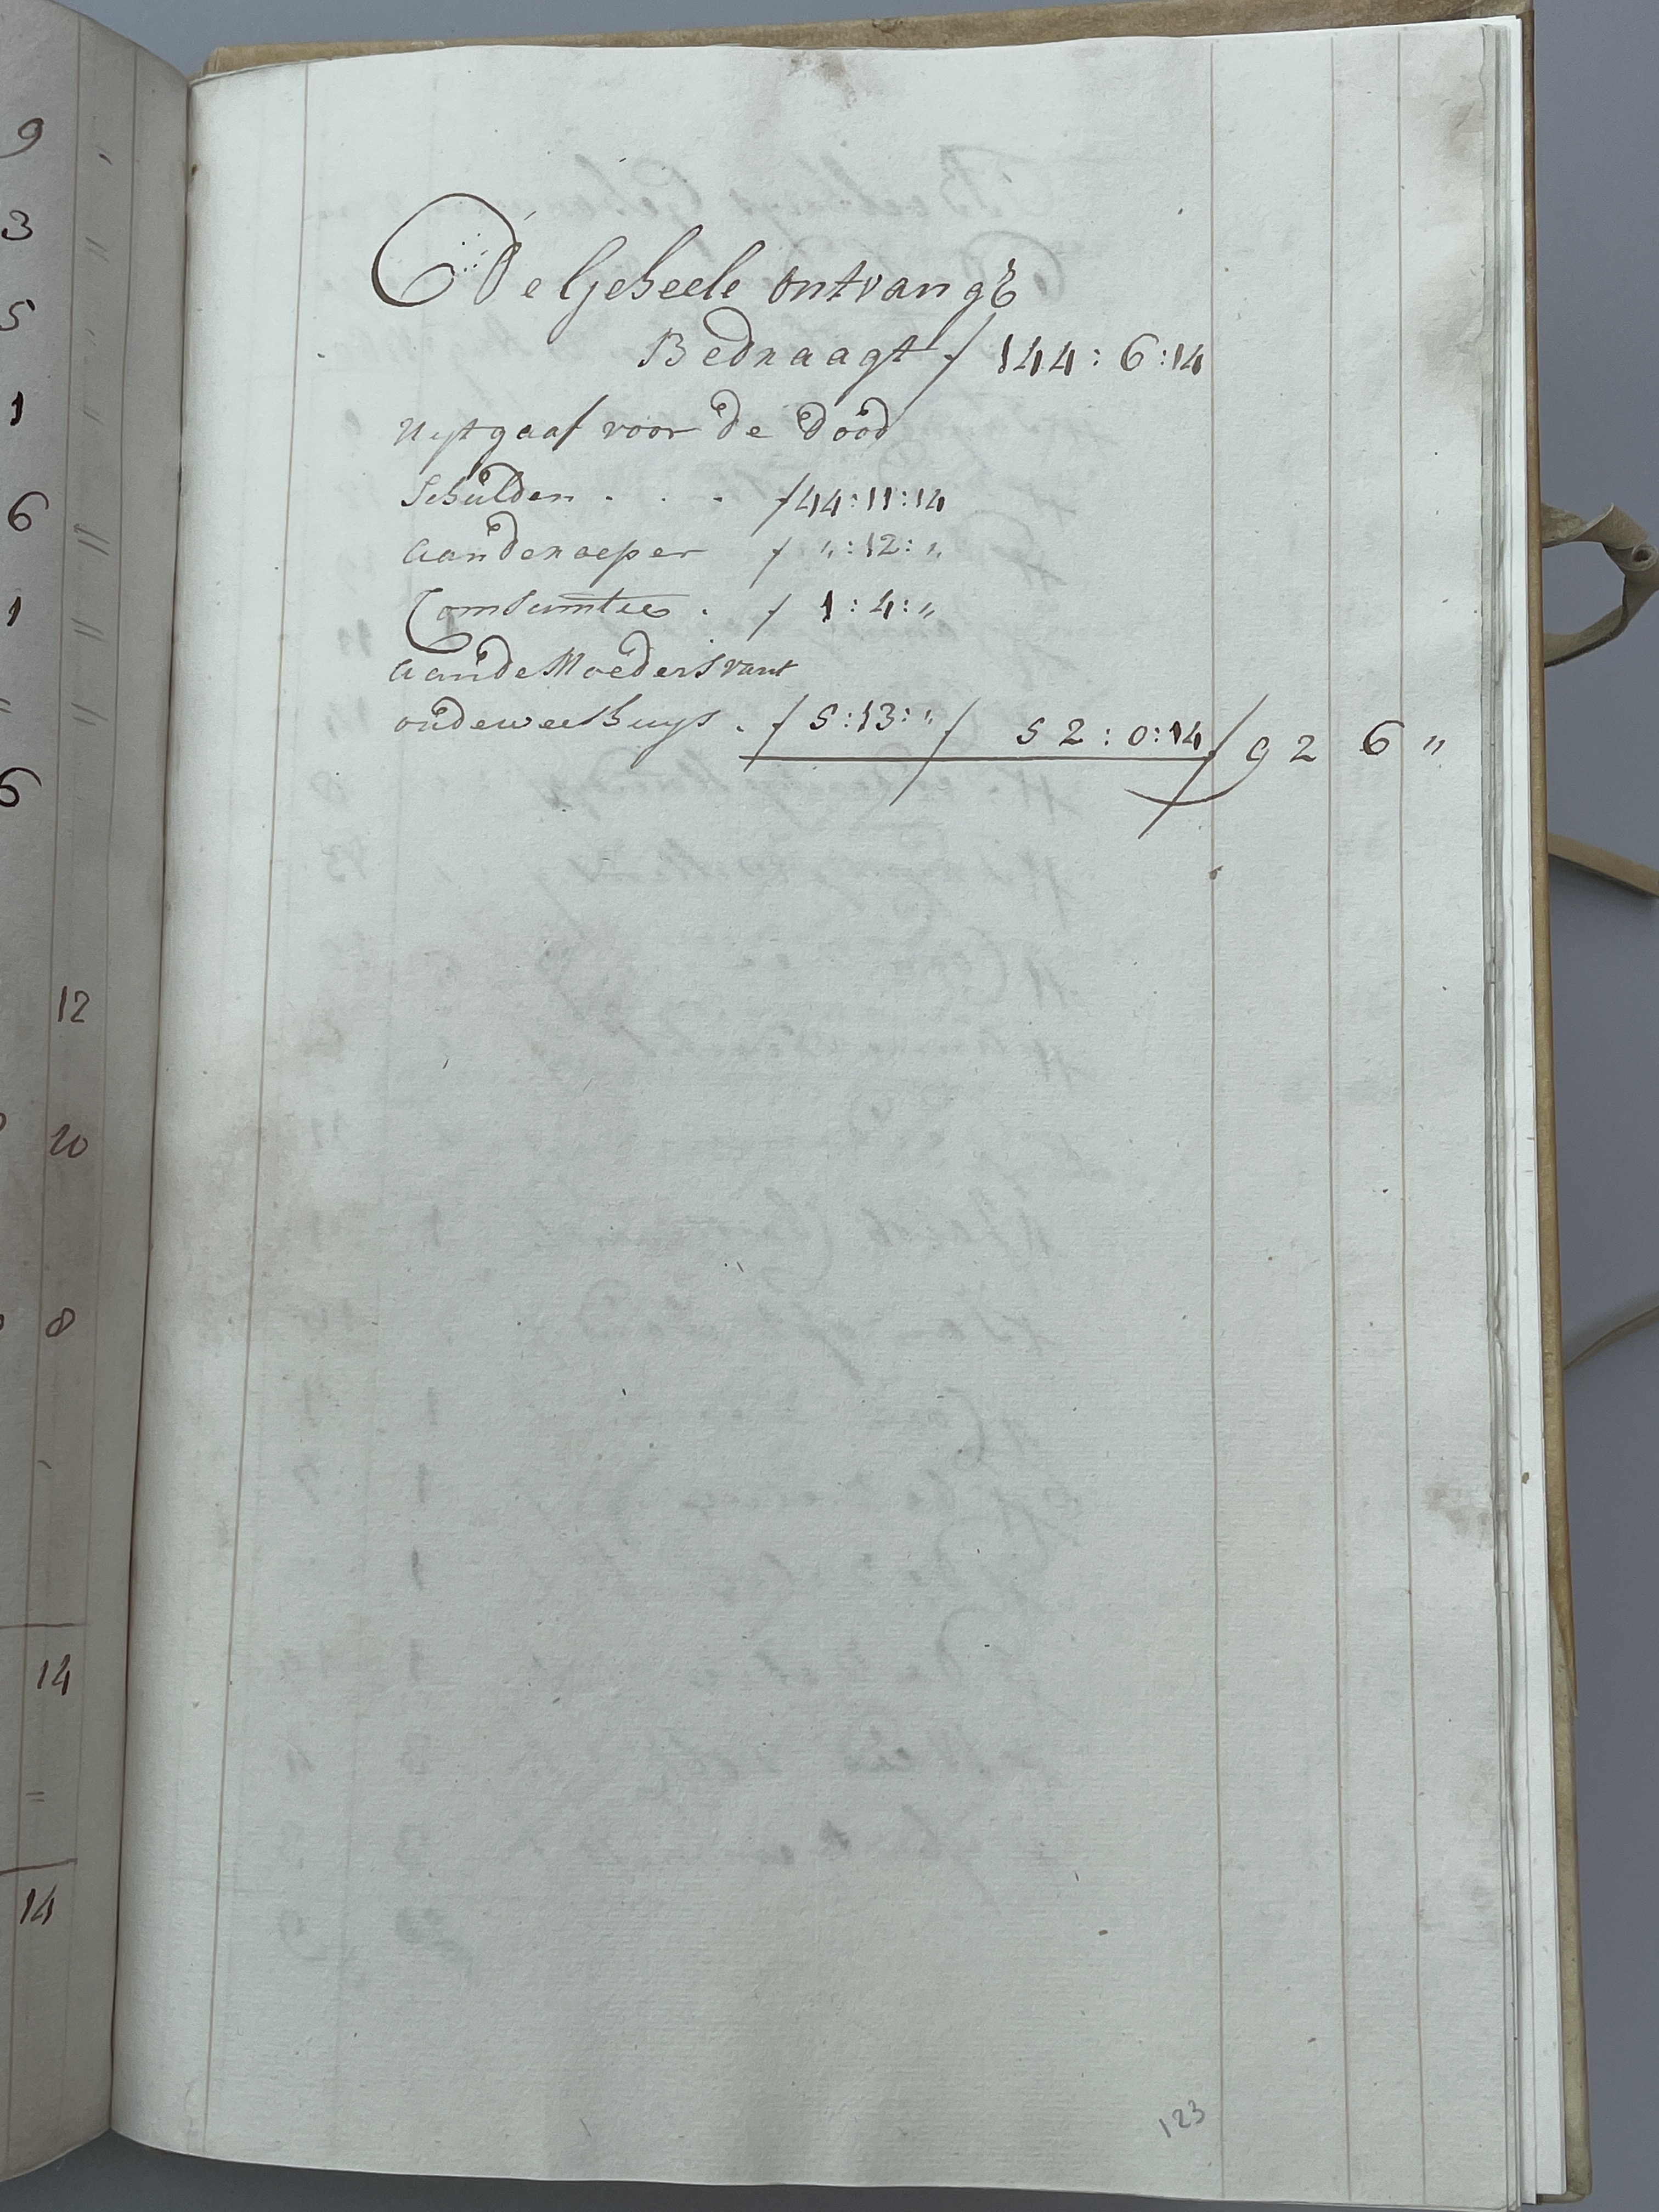 9 "
3 "
5 "
1 "
6 "
1 "
" "
6
12
20
8
14
=
14
De Geheele ontvangst
Bedraagt f 144 : 6 : 14
Uijtgaaf voor de dood
Schulden . . . f 44 : 11 : 14
aandenaeper f " : 12 : "
Comsumtie . f 1 : 4 : "
aan de Moeders vant
oudeweeshuys . f 5 : 13 : " f 52 : 0 : 14 f 92 6 "
123